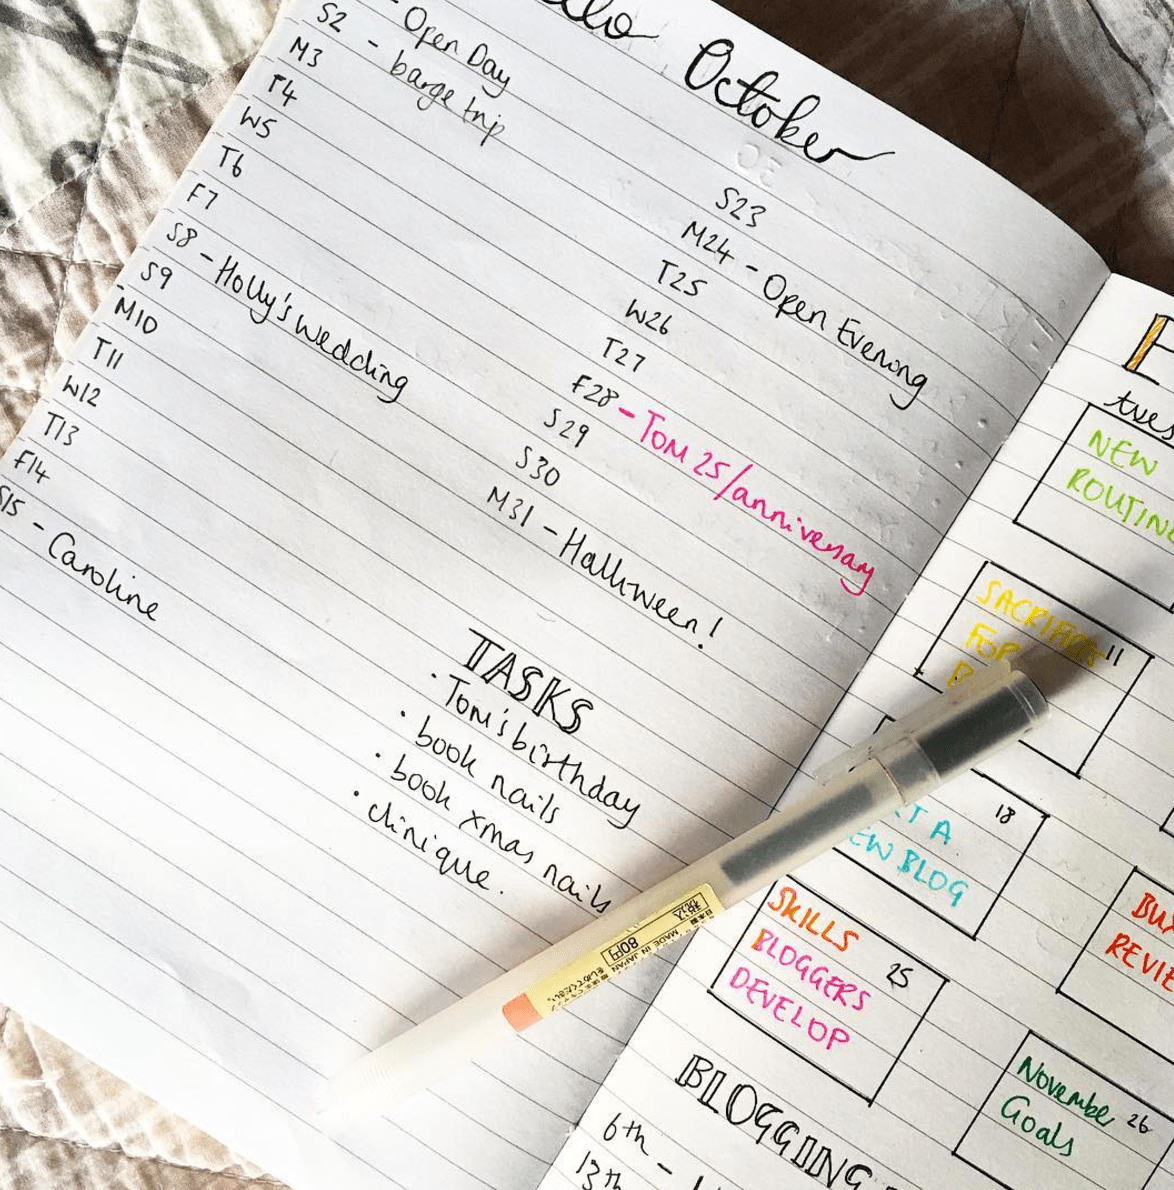 October
- Open Day
S2 - barge trip
M3
T4
W5
T6
F7
S8 - Holly's wedding
S9
M10
T11
W12
T13
F14
S15 - Caroline
S23
M24 - Open Evening
T25
W26
T27
F28 - TOM 25/anniversay
S29
S30
M31 - Halloween!
TASKS
· Tom's birthday
· book nails
· book xmas nails
· clinique.
NEW
SACRIFICE 11
FOR
18
A
BLOG
SKILLS
BLOGGERS 25
DEVELOP
November 26
Goals
BLOGGING
6th -
13th
80円
MADE IN JAPAN
日本製
税込